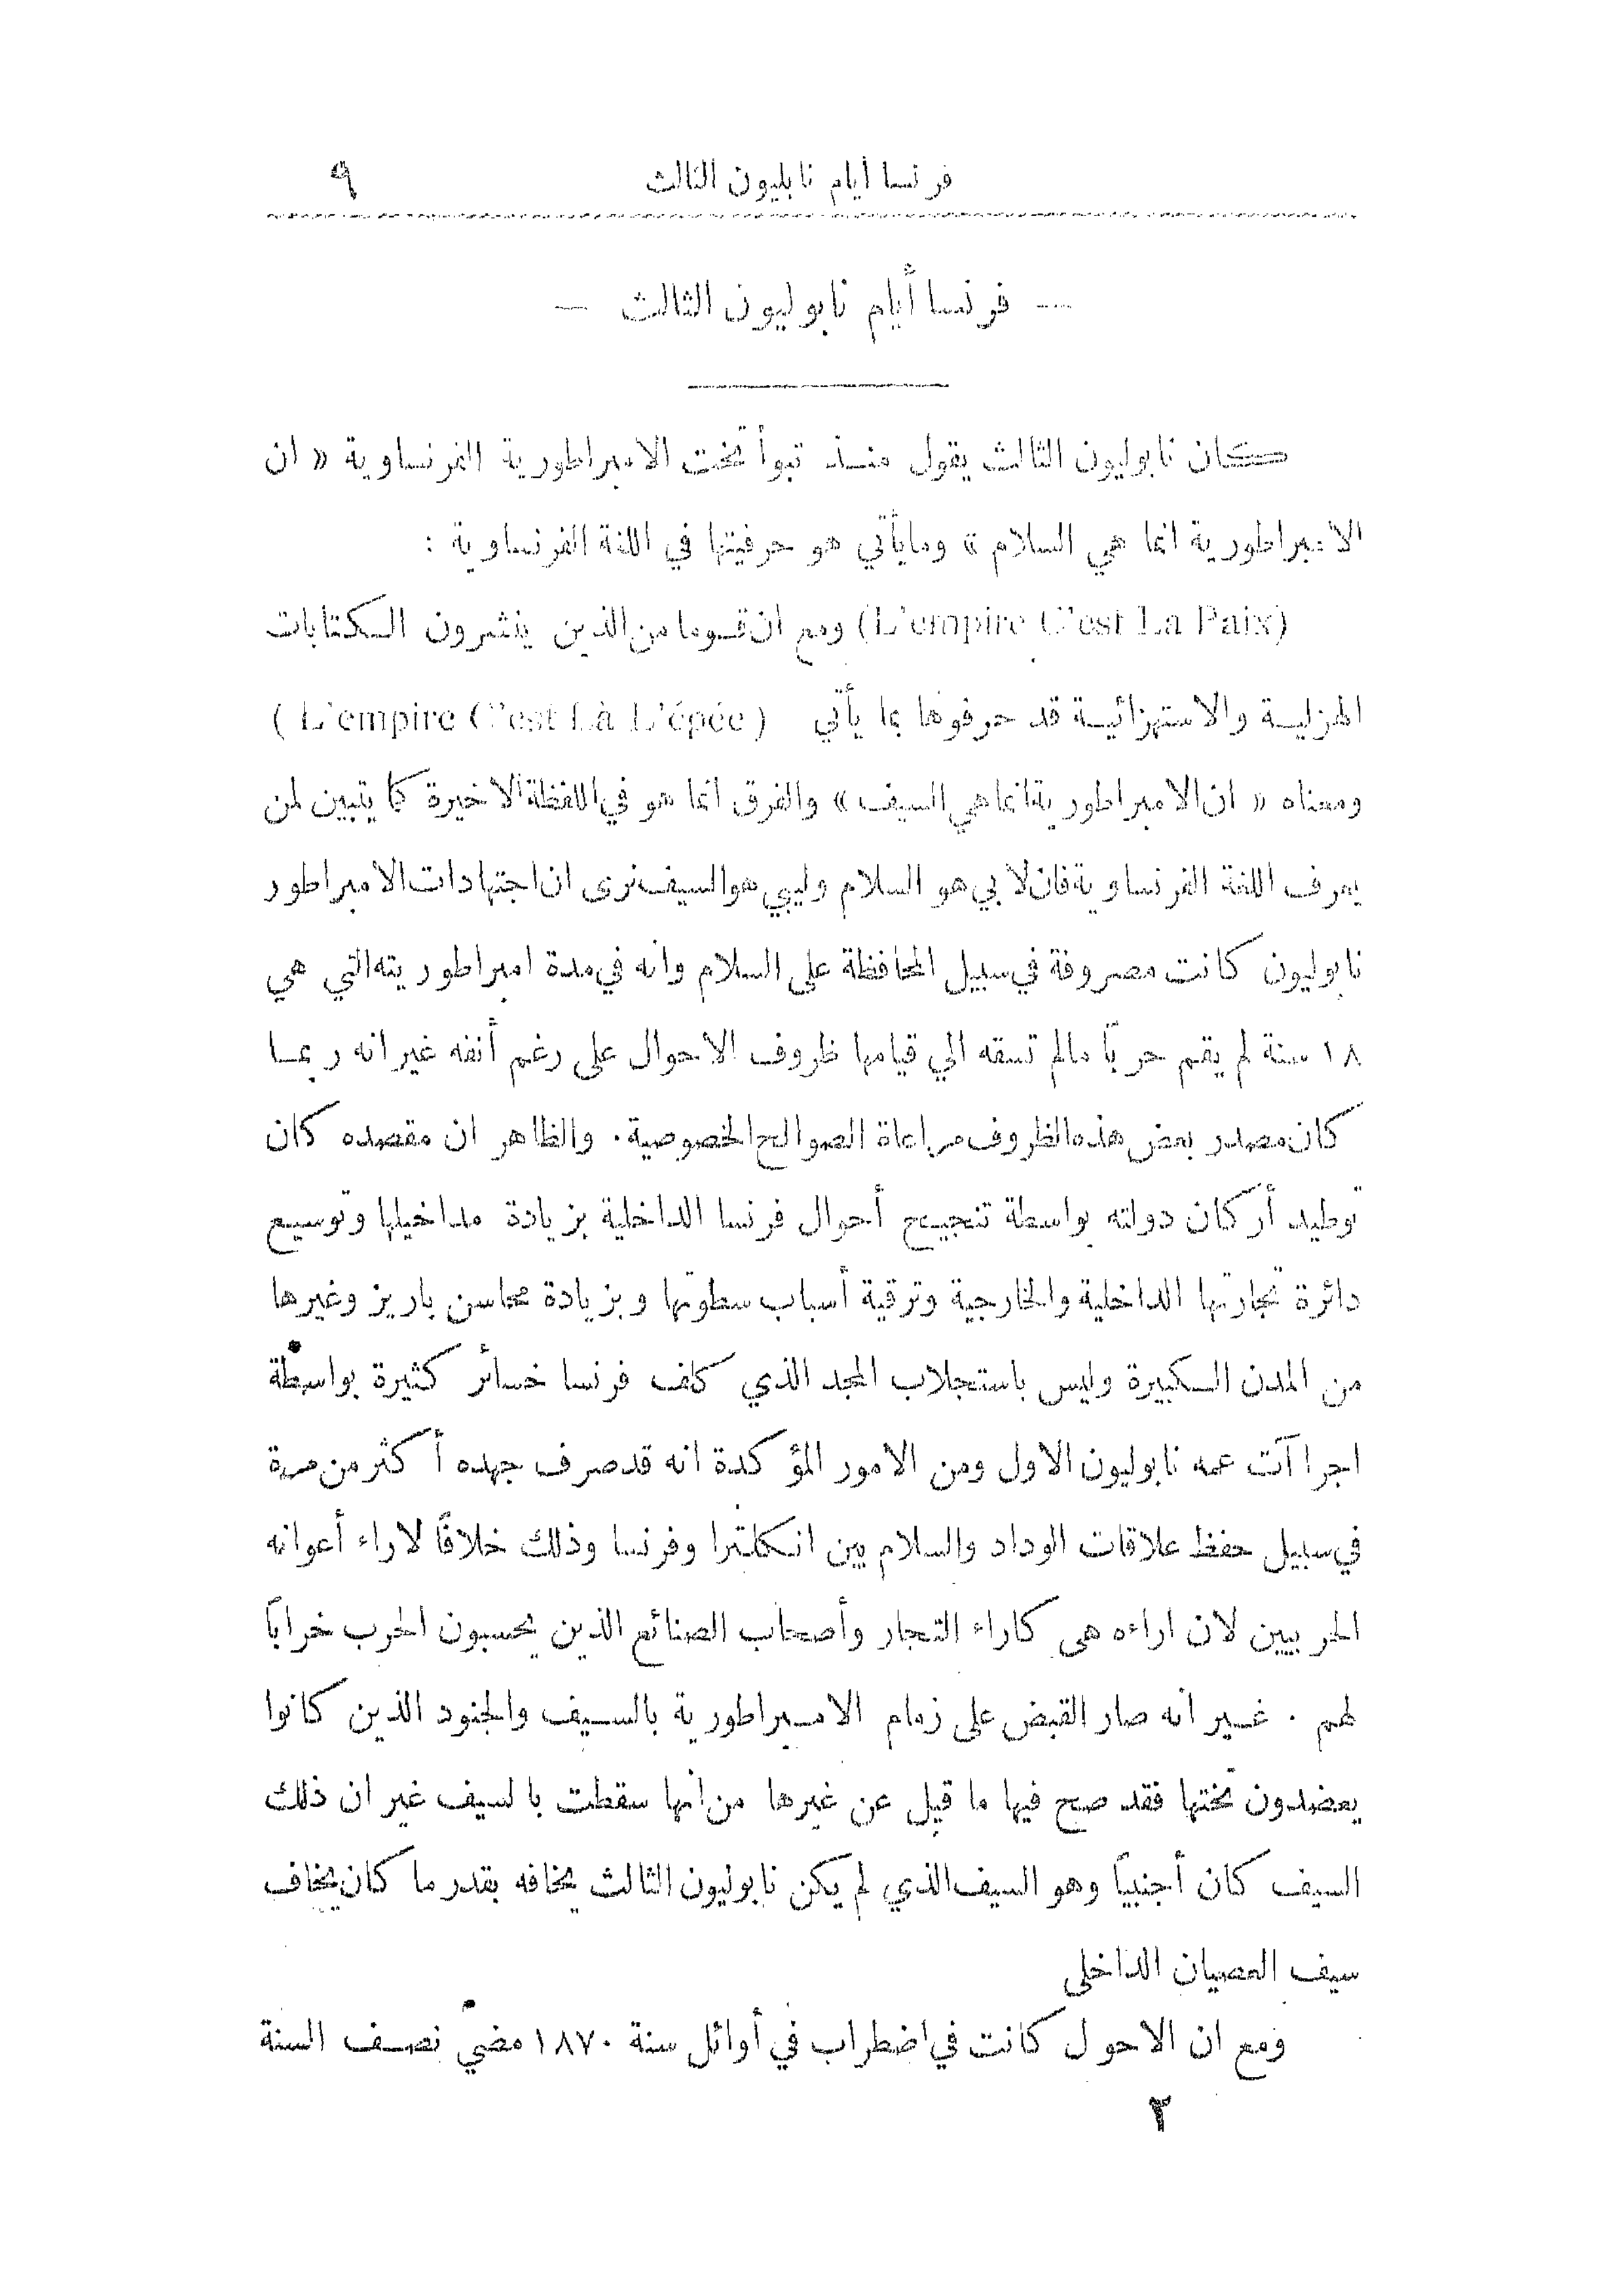 فرنسا أيام نابليون الثالث ٩
-- فرنسا أيام نابوليون الثالث --
كان نابوليون الثالث يقول منذ تبوأ تخت الامبراطورية الفرنساوية « ان
الامبراطورية انما هي السلام » ومايأتي هو حرفيتها في اللغة الفرنساوية :
(L'empire C'est La Paix) ومع ان قوما من الذين ينشرون الكتابات
الهزلية والاستهزائية قد حرفوها بما يأتي (L'empire C'est Là L'épée)
ومعناه « ان الامبراطورية انما هي السيف » والفرق انما هو في اللفظة الاخيرة كما يتبين لمن
يعرف اللغة الفرنساوية فان لا بي هو السلام وليبي هو السيف نرى ان اجتهادات الامبراطور
نابوليون كانت مصروفة في سبيل المحافظة على السلام وانه في مدة امبراطوريته التي هي
١٨ سنة لم يقم حرباً مالم تسقه الي قيامها ظروف الاحوال على رغم أنفه غير انه ربما
كان مصدر بعض هذه الظروف مراعاة الصوالح الخصوصية . والظاهر ان مقصده كان
توطيد أركان دولته بواسطة تنجيح أحوال فرنسا الداخلية بزيادة مداخيلها وتوسيع
دائرة تجارتها الداخلية والخارجية وترقية أسباب سطوتها وبزيادة محاسن باريز وغيرها
من المدن الكبيرة وليس باستجلاب المجد الذي كلف فرنسا خسائر كثيرة بواسطة
اجراآت عمه نابوليون الاول ومن الامور المؤكدة انه قد صرف جهده أكثر من مرة
في سبيل حفظ علاقات الوداد والسلام بين انكلترا وفرنسا وذلك خلافاً لاراء أعوانه
الحربيين لان اراءه هى كاراء التجار وأصحاب الصنائع الذين يحسبون الحرب خراباً
لهم . غير انه صار القبض على زمام الامبراطورية بالسيف والجنود الذين كانوا
يعضدون تختها فقد صح فيها ما قيل عن غيرها من انها سقطت بالسيف غير ان ذلك
السيف كان أجنبياً وهو السيف الذي لم يكن نابوليون الثالث يخافه بقدر ما كان يخاف
سيف العصيان الداخلى
ومع ان الاحول كانت في اضطراب في أوائل سنة ١٨٧٠ مضي نصف السنة
٢